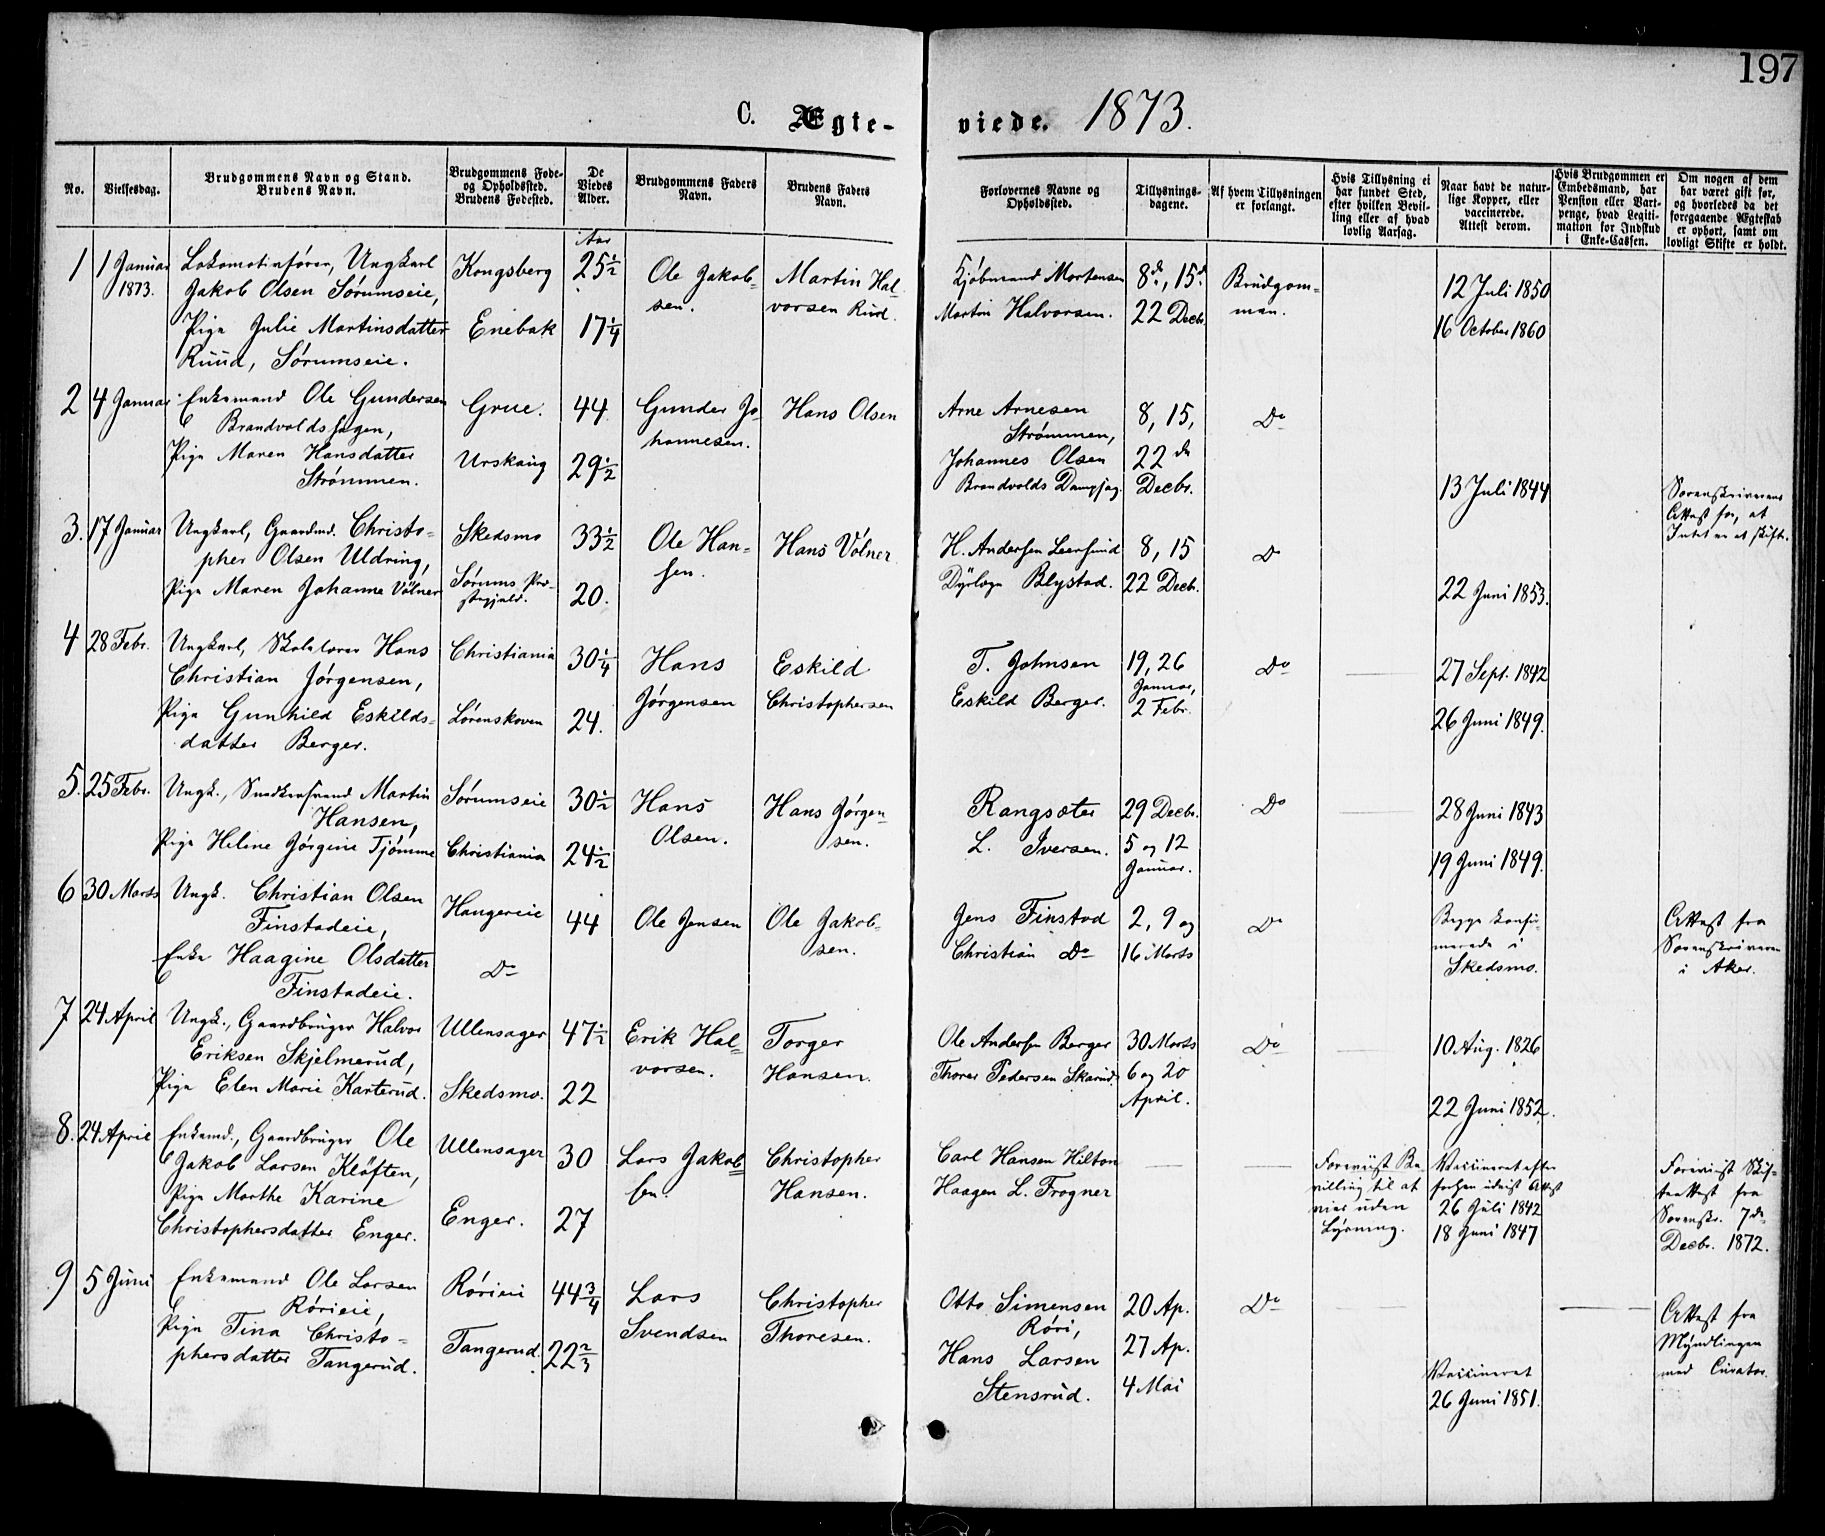 197
C. Ægte- viede. 1873.
No.
Vielsesdag.
Brudgommens Navn og Stand.
Brudens Navn.
Brudgommens Føde-
og Opholdssted.
Brudens Fødested.
De
Viedes
Alder.
Brudgommens Faders
Navn.
Brudens Faders
Navn.
Forlovernes Navne og
Opholdssted.
Tillysnings-
dagene.
Af hvem Tillysningen
er forlangt.
Hvis Tillysning ei
har fundet Sted,
efter hvilken Bevil-
ling eller af hvad
lovlig Aarsag.
Naar havt de natur-
lige Kopper, eller
vaccinerede.
Attest derom.
Hvis Brudgommen er
Embedsmand, har
Pension eller Vart-
penge, hvad Legiti-
mation for Indskud
i Enke-Cassen.
Om nogen af dem
har været gift før,
og hvorledes da det
foregaaende Ægteskab
er ophørt, samt om
lovligt Skifte er holdt.
1
1 Januar
1873.
Lokomotivfører, Ungkarl
Jakob Olsen Sørumseie,
Pige Julie Martinsdatter
Ruud, Sørumseie.
Kongsberg
Enebak
Aar
25 1/2
17 1/4
Ole Jakob-
sen.
Martin Hal-
vorsen Ruud.
Kjøbmand Mortensen
Martin Halvorsen.
8de, 15de
22 Decbr.
Brudgom-
men.
12 Juli 1850
16 October 1860
2
4 Januar
Enkemand Ole Gundersen
Brandvoldssagen,
Pige Maren Hansdatter
Strømmen.
Grue.
Urskoug
44
29 1/2
Gunder Jo-
hannesen.
Hans Olsen
Arne Arnesen
Strømmen,
Johannes Olsen
Brandvolds Dampsag.
8, 15,
22 de
Decbr.
Do
13 Juli 1844
Sorenskriverens
Attest for, at
Intet er at skifte.
3.
17 Januar
Ungkarl, Gaardmd. Christo-
pher Olsen Uldring,
Pige Maren Johanne Vølner
Skedsmo
Sørums Præ-
stegjeld.
33 1/2
20.
Ole Han-
sen.
Hans Vølner
H. Andersen Leersund
Blystad.
8, 15
22 Decb.
Do
22 Juni 1853.
4
28 Febr.
Ungkarl, Skolelærer Hans
Christian Jørgensen,
Pige Gunhild Eskilds-
datter Berger.
Christiania
Lørenskoven
30 1/4
24.
Hans
Jørgensen
Eskild
Christophersen
T. Johnsen
Eskild Berger.
19, 26
Januar,
2 Febr.
Do
27 Sept. 1842
26 Juni 1849.
5.
25 Febr.
Ungk., Snedkersvend Martin
Hansen,
Pige Helene Jørgine Tjømme
Sørumseie
Christiania
30 1/2
24 1/2
Hans
Olsen.
Hans Jørgen-
sen.
Rangsæter
L. Iversen.
29 Decbr.
5 og 12
Januar.
Do
28 Juni 1843
19 Juni 1849.
6
30 Marts
Ungk. Christian Olsen
Finstadeie,
Enke Haagine Olsdatter
Finstadeie.
Haugereie
Do
44
Ole Jensen
Ole Jakob-
sen.
Jens Finstad
Christian Do
2, 9 og
16 Marts
Do
Begge konfir-
merede i
Skedsmo.
Attest fra
Sorenskriveren
i Aker.
7
24 April
Ungk., Gaardbruger Halvor
Eriksen Skjelmerud,
Pige Elen Marie Karterud.
Ullensager
Skedsmo.
47 1/2
22
Erik Hal-
vorsen.
Torger
Hansen.
Ole Andersen Berger
Thorer Pedersen Skarud
30 Marts
6 og 20
April.
Do
10 Aug. 1826
22 Juni 1852.
8.
24 April
Enkemd., Gaardbruger Ole
Jakob Larsen Kløften,
Pige Marthe Karine
Christophersdatter Enger.
Ullensager
Enger.
30
27
Lars Jakob-
sen.
Christopher
Hansen.
Carl Hansen Hilton
Haagen L. Frogner
Foreviist Be-
villing til at
vies uden
Lysning.
Vaccineret efter
forhen udvist Attest
26 Juli 1842
18 Juni 1847
Foreviist Skif-
teattest fra
Sorenskr. 7 de
Decbr. 1872.
9
5 Juni
Enkemand Ole Larsen
Rørieie,
Pige Tina Christo-
phersdatter Tangerud.
Rørieie
Tangerud.
44 3/4
22 2/3
Lars
Svendsen
Christopher
Thoresen.
Otto Simensen
Røri,
Hans Larsen
Stensrud.
20 Ap.
27 Ap.
4 Mai
Do
Vaccineret
26 Juni 1851.
Attest fra
Myndlingen
med Curator.